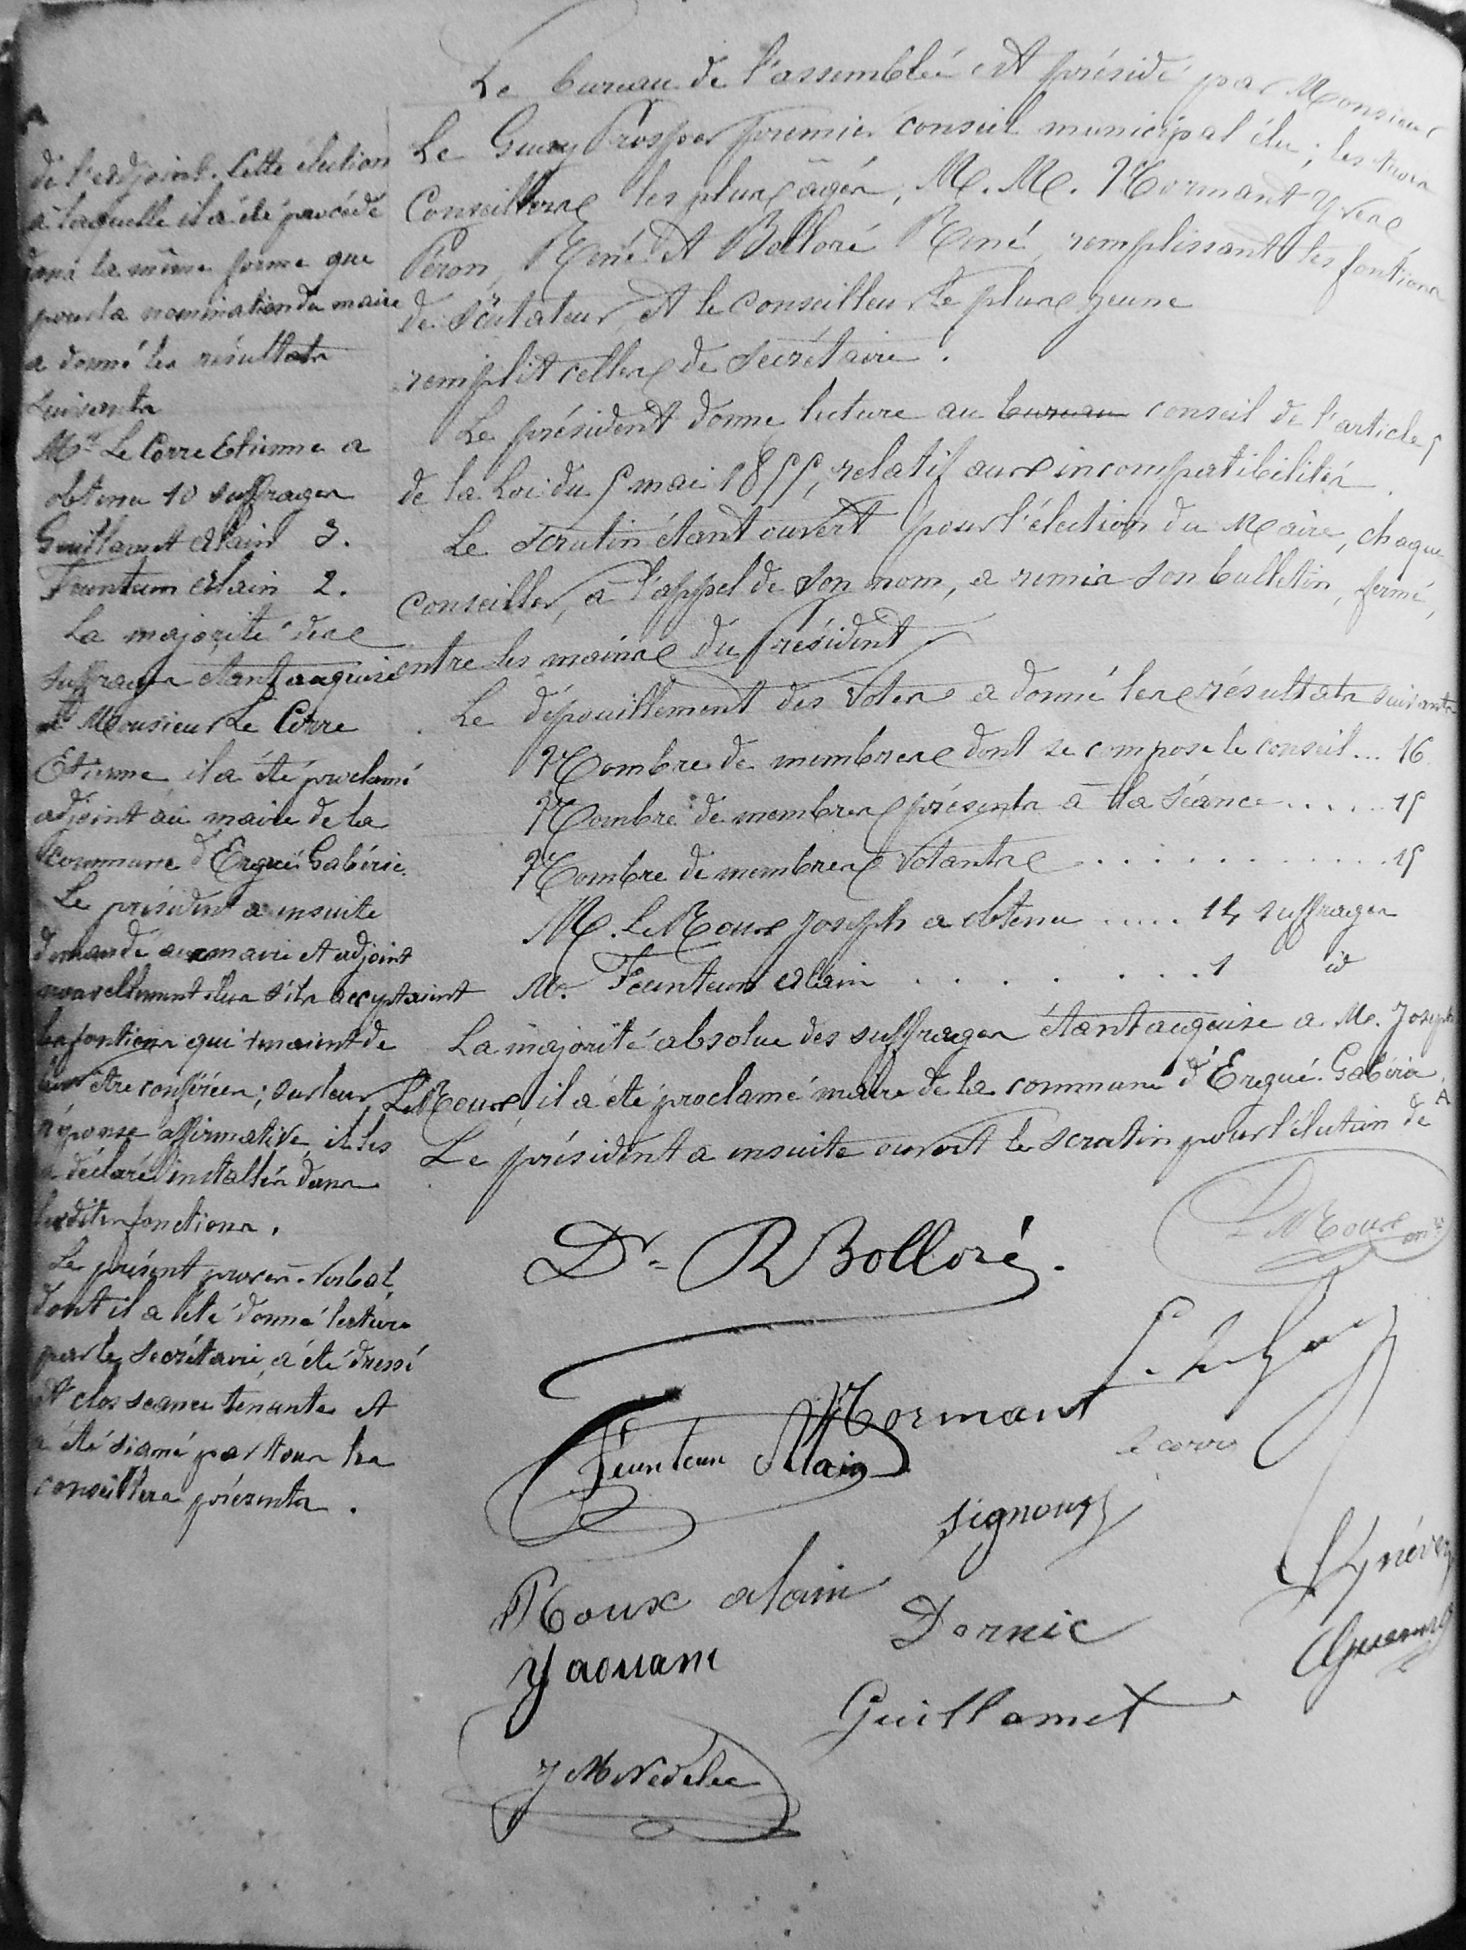 Le bureau de l'assemblée est présidé par Monsieur
Le Guay Prosper premier conseil municipal élu ; les trois
Conseillers les plus agés, M. M. Normant Yves
Péron, René et Bolloré René, remplissant les fontions
de scrutateur, et le conseiller le plus jeune
remplit celles de secrétaire.
Le président donne lecture au bureau conseil de l'article 5
de la Loi du 5 mai 1855, relatif aux incompatibilités.
Le scrutin étant ouvert pour l'élection du Maire, chaque
conseiller, à l'appel de son nom, a remis son bulletin, fermé,
entre les mains du Président
Le dépouillement des votes a donné les résultats suivants
Nombre de membres dont se compose le conseil... 16
Nombre de membres présents à la séance..... 15
Nombre de membres votants ............ 15
M. Le Roux Joseph a obtenu ..... 14 suffrages
M. Feunteun Alain ........ 1 id
La majorité absolue des suffrages étant acquise a M. Joseph
Le Roux, il a été proclamé maire de la commune d'Ergué-Gabéric.
Le président a ensuite ouvert le scrutin pour l'élection de
de l'adjoint. Cette élection
à laquelle il a été procédé
dans la même forme que
pour la nomination du maire
a donné les résultats
suivants
Mr Le Corre Etienne a
obtenu 10 suffrages
Guillamet Alain 3.
Feunteun Alain 2.
La majorité des
suffrages étant acquise
à Monsieur Le Corre
Etienne il a été proclamé
adjoint au maire de la
commune d'Ergué-Gabéric.
Le président a ensuite
demandé aux maire et adjoint
nouvellement élus s'ils acceptaient
les fontions qui venaient de
leur être conférées ; sur leur
réponse affirmative, il les
a déclaré installés dans
lesdites fonctions.
Le présent procès-verbal,
dont il a été donné lecture
par le secrétaire, a été dressé
et clos séance tenante et
a été signé par tous les
conseillers présents.
Dr. R Bolloré.
Le Roux
Normant
Feunteun Alain
le corre
Signour
Roux alain
Dornic
Yaouanc
Guillamet
J M Nedelec